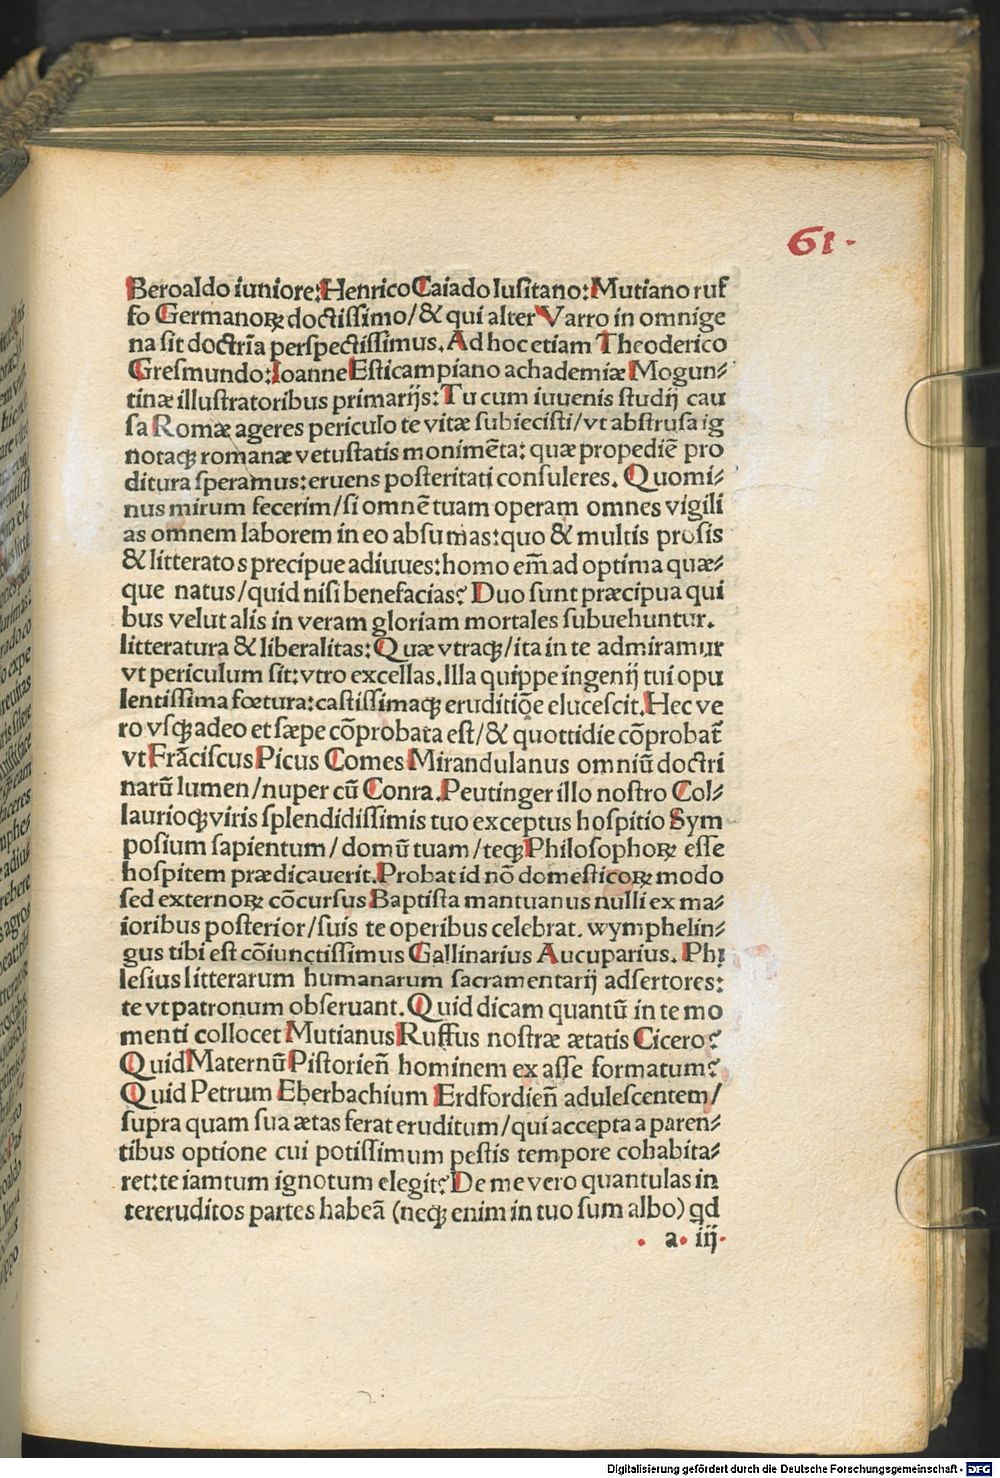 61.
Beroaldo iuniore: Henrico Caiado lusitano: Mutiano ruf
fo Germanoꝝ doctissimo/& qui alter Varro in omnige
na sit doctrīa perspectissimus. Ad hoc etiam Theoderico
Gresmundo: Ioanne Esticampiano achademiæ Mogun⸗
tinæ illustratoribus primarijs: Tu cum iuuenis studij cau
sa Romæ ageres periculo te vitæ subiecisti/vt abstrusa ig
notaqꝫ romanæ vetustatis monimēta: quæ propediē pro
ditura speramus: eruens posteritati consuleres. Quomi⸗
nus mirum fecerim/si omnē tuam operam omnes vigili
as omnem laborem in eo absumas: quo & multis prosis
& litteratos precipue adiuues: homo em̄ ad optima quæ⸗
que natus/quid nisi benefacias? Duo sunt præcipua qui
bus velut alis in veram gloriam mortales subuehuntur.
litteratura & liberalitas: Quæ vtraqꝫ/ita in te admiramur
vt periculum sit: vtro excellas. Illa quippe ingenij tui opu
lentissima fœtura: castissimaqꝫ eruditiōe elucescit. Hec ve
ro vsqꝫ adeo et sæpe cōprobata est/& quottidie cōprobat̄
vt Frāciscus Picus Comes Mirandulanus omniū doctri
narū lumen/nuper cū Conra. Peutinger illo nostro Col⸗
laurioqꝫ viris splendidissimis tuo exceptus hospitio Sym
posium sapientum/domū tuam/teqꝫ Philosophoꝝ esse
hospitem prædicauerit. Probat id nō domesticoꝝ modo
sed externoꝝ cōcursus Baptista mantuanus nulli ex ma⸗
ioribus posterior/suis te operibus celebrat. wymphelin⸗
gus tibi est cōiunctissimus Gallinarius Aucuparius. Phi
lesius litterarum humanarum sacramentarij adsertores:
te vt patronum obseruant. Quid dicam quantū in te mo
menti collocet Mutianus Ruffus nostræ ætatis Cicero?
Quid Maternū Pistorien̄ hominem ex asse formatum?
Quid Petrum Eberbachium Erdfordien̄ adulescentem/
supra quam sua ætas ferat eruditum/qui accepta a paren⸗
tibus optione cui potissimum pestis tempore cohabita⸗
ret: te iamtum ignotum elegit? De me vero quantulas in
tereruditos partes habeā (neqꝫ enim in tuo sum albo) qd
a iij
Digitalisierung gefördert durch die Deutsche Forschungsgemeinschaft - DFG